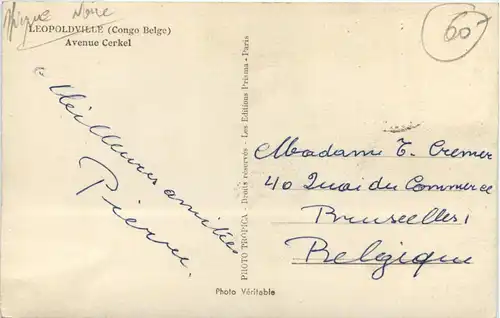 Afrique Noire
60
LEOPOLDVILLE (Congo Belge)
Avenue Cerkel
Meilleures amitiés
Pierre.
PHOTO TROPICA - Droits réservés - Les Editions Prisma - Paris
Madame T. Cremer
40 Quai du Commerce
Bruxelles,
Belgique
Photo Véritable